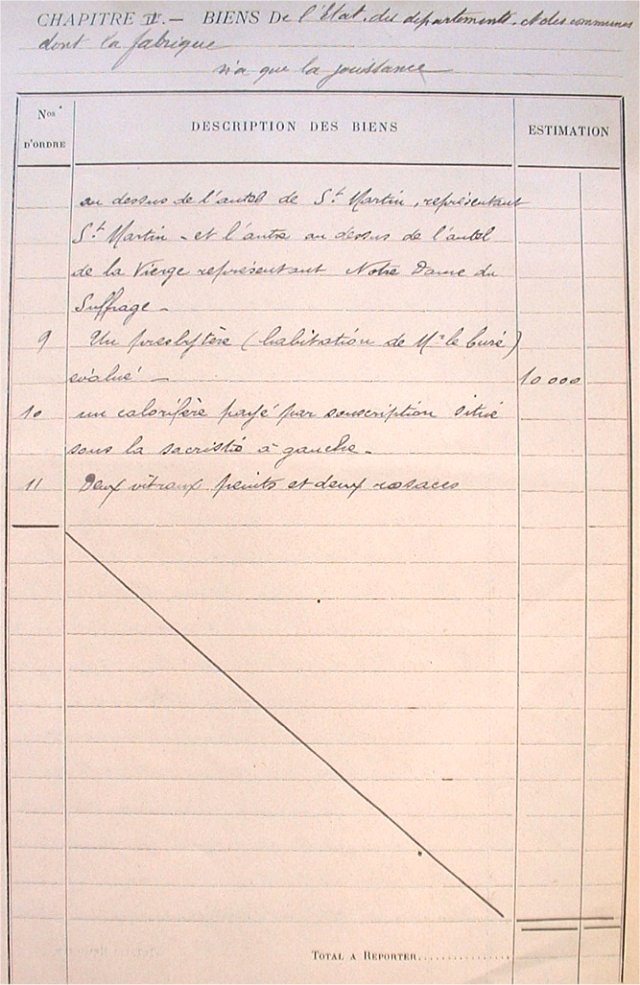 CHAPITRE II. — BIENS De l'Etat, des départements et des communes
dont la fabrique
n'a que la jouissance
Nos D'ORDRE DESCRIPTION DES BIENS ESTIMATION
au dessus de l'autel de St Martin, représentant
St Martin - et l'autre au dessus de l'autel
de la Vierge représentant Notre Dame du
Suffrage -
9 Un presbytère (habitation de Mr le Curé)
évalué — 10 000
10 un calorifère payé par souscription situé
sous la sacristie à gauche -
11 Deux vitraux peints et deux rosaces
TOTAL A REPORTER